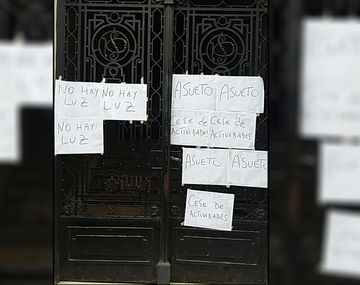 NO HAY
LUZ
NO HAY
LUZ
NO HAY
LUZ
ASUETO
ASUETO
CESE DE
ACTIVIDADES
CESE DE
ACTIVIDADES
ASUETO
ASUETO
CESE DE
ACTIVIDADES